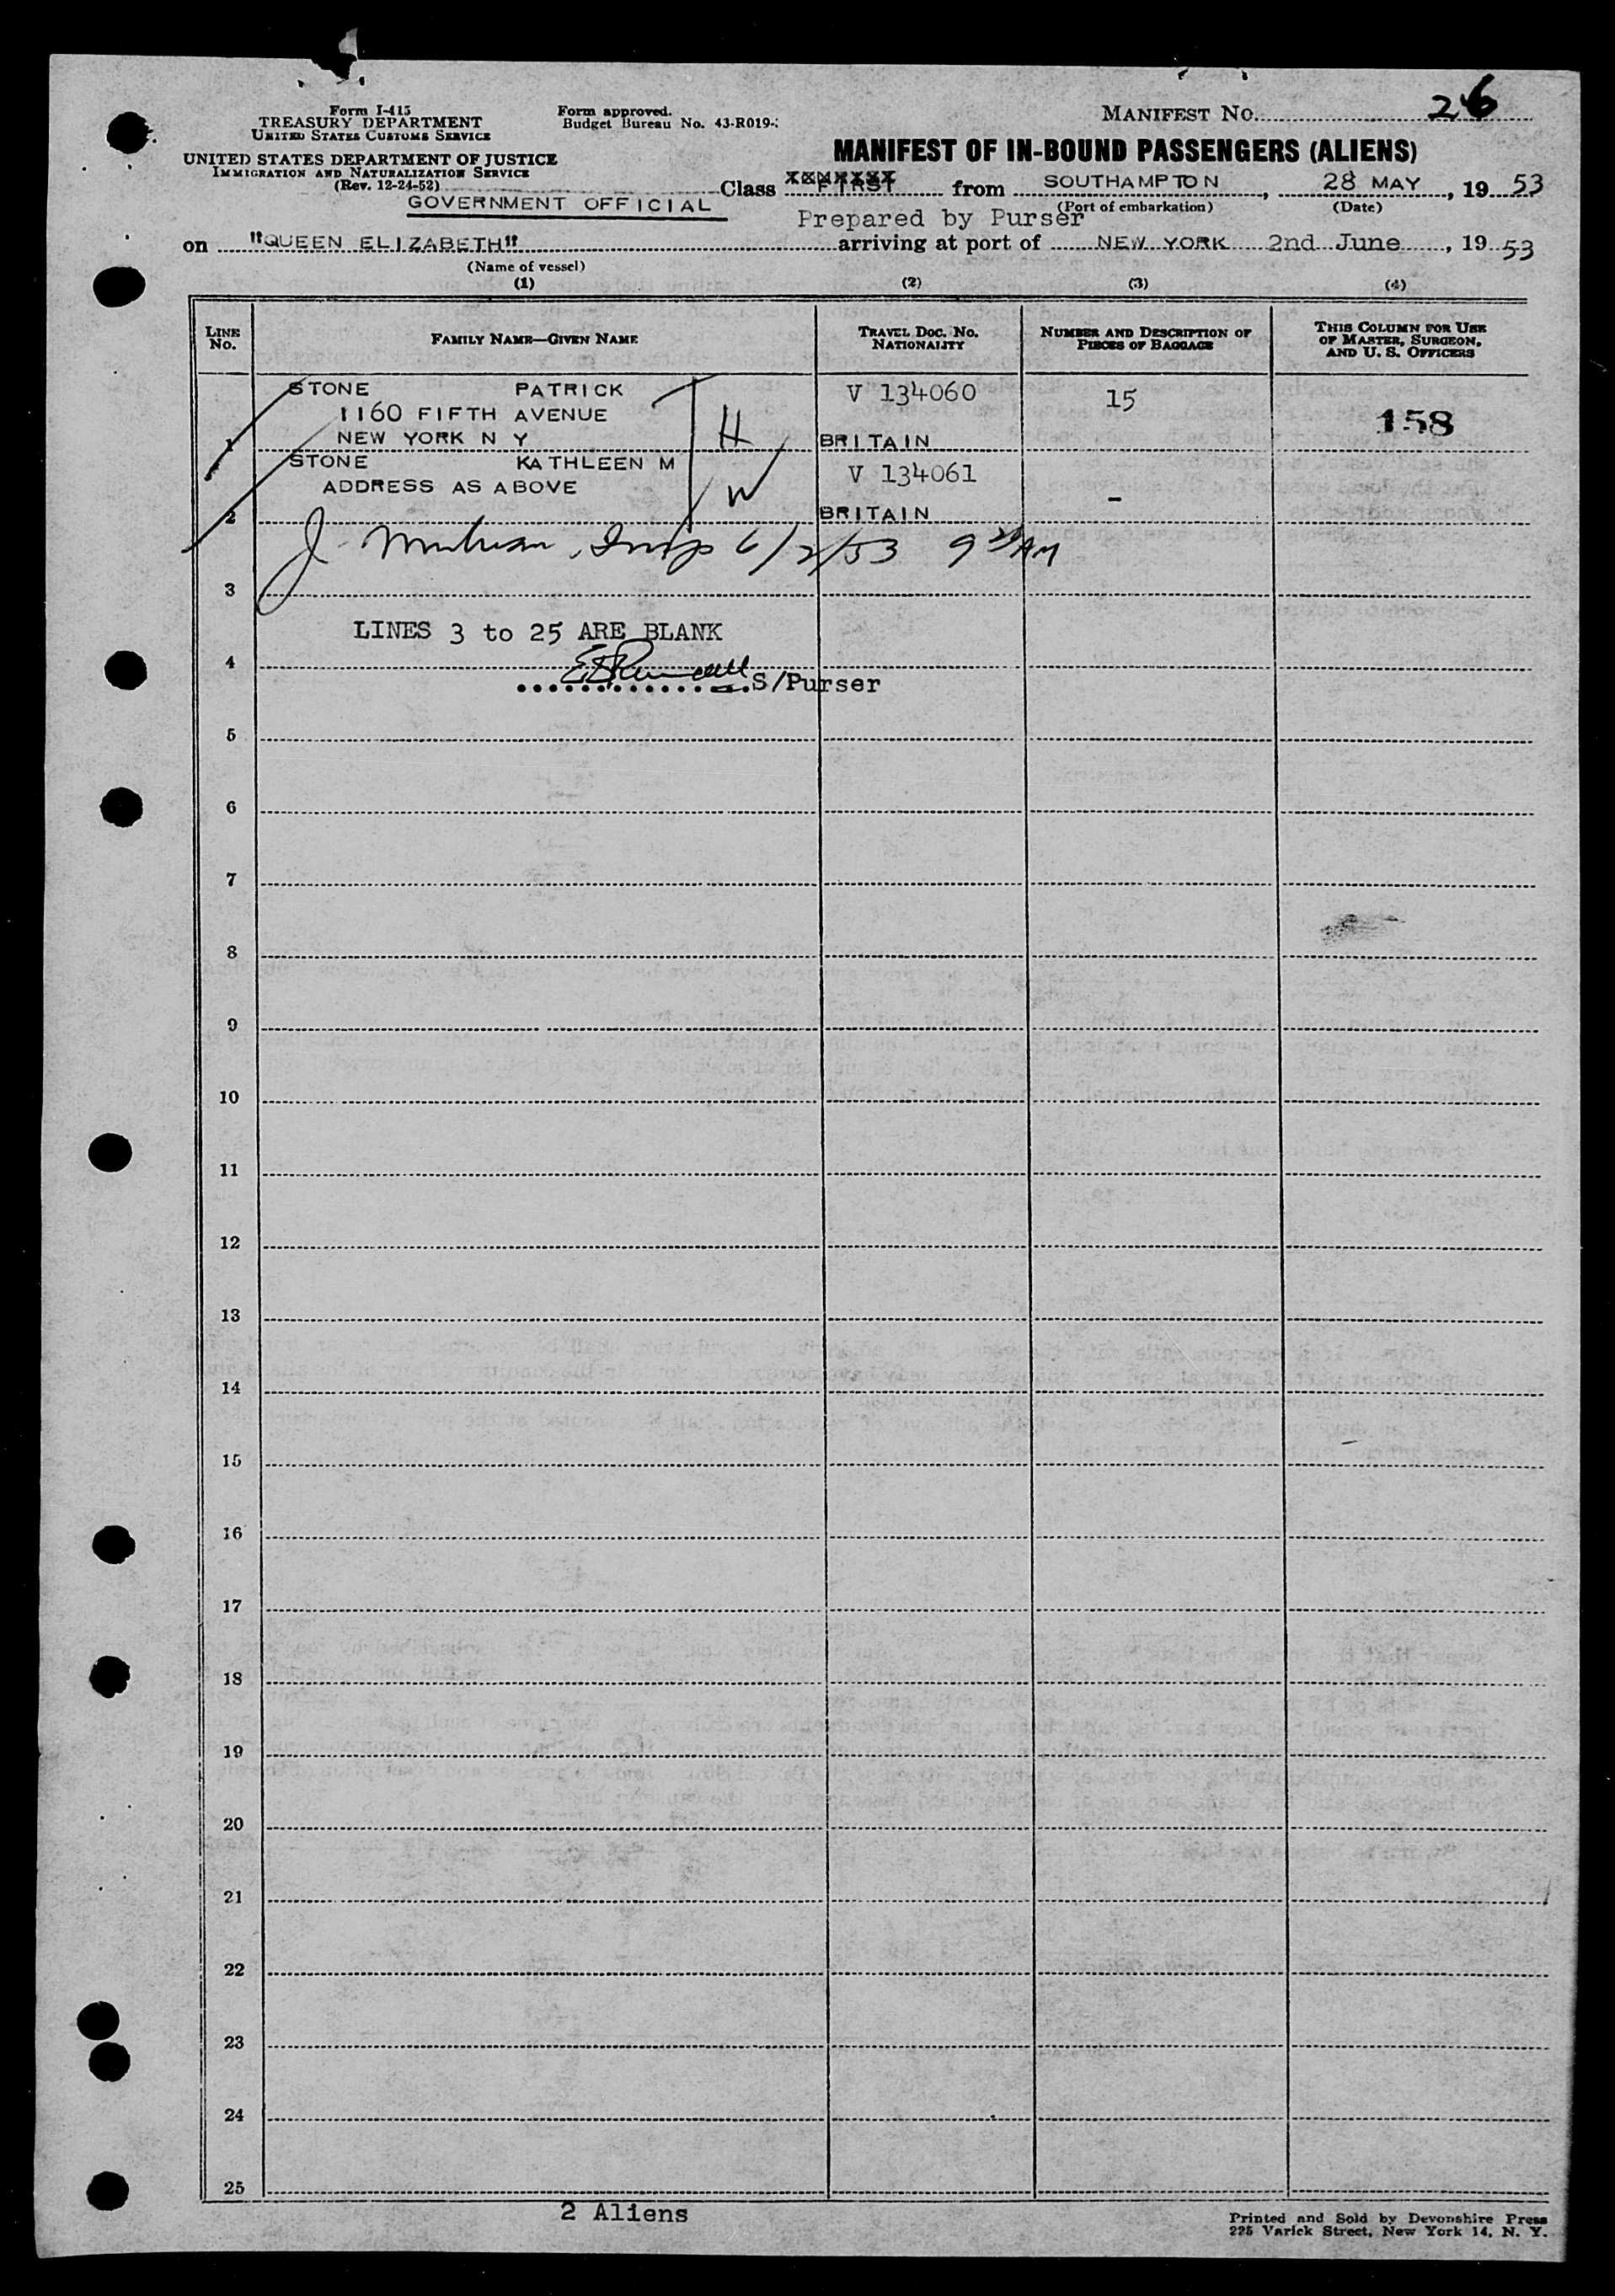 Form I-415
TREASURY DEPARTMENT
UNITED STATES CUSTOMS SERVICE
UNITED STATES DEPARTMENT OF JUSTICE
IMMIGRATION AND NATURALIZATION SERVICE
(Rev. 12-24-52)
Form approved.
Budget Bureau No. 43-R019-
MANIFEST NO. 26
MANIFEST OF IN-BOUND PASSENGERS (ALIENS)
GOVERNMENT OFFICIAL
Class FIRST from SOUTHAMPTON, 28 MAY, 19 53
(Port of embarkation) (Date)
Prepared by Purser
on "QUEEN ELIZABETH" arriving at port of NEW YORK 2nd June, 19 53
(Name of vessel)
(1) (2) (3) (4)
LINE NO. FAMILY NAME—GIVEN NAME TRAVEL DOC. NO. NATIONALITY NUMBER AND DESCRIPTION OF PIECES OF BAGGAGE THIS COLUMN FOR USE OF MASTER, SURGEON, AND U. S. OFFICERS
STONE PATRICK V 134060 15
1160 FIFTH AVENUE H 158
1 NEW YORK N Y BRITAIN
STONE KATHLEEN M V 134061 -
ADDRESS AS ABOVE W
2 BRITAIN
J 6/2/53 9 AM
3
LINES 3 to 25 ARE BLANK
4
S/Purser
5
6
7
8
9
10
11
12
13
14
15
16
17
18
19
20
21
22
23
24
25
2 Aliens
Printed and Sold by Devonshire Press
225 Varick Street, New York 14, N. Y.